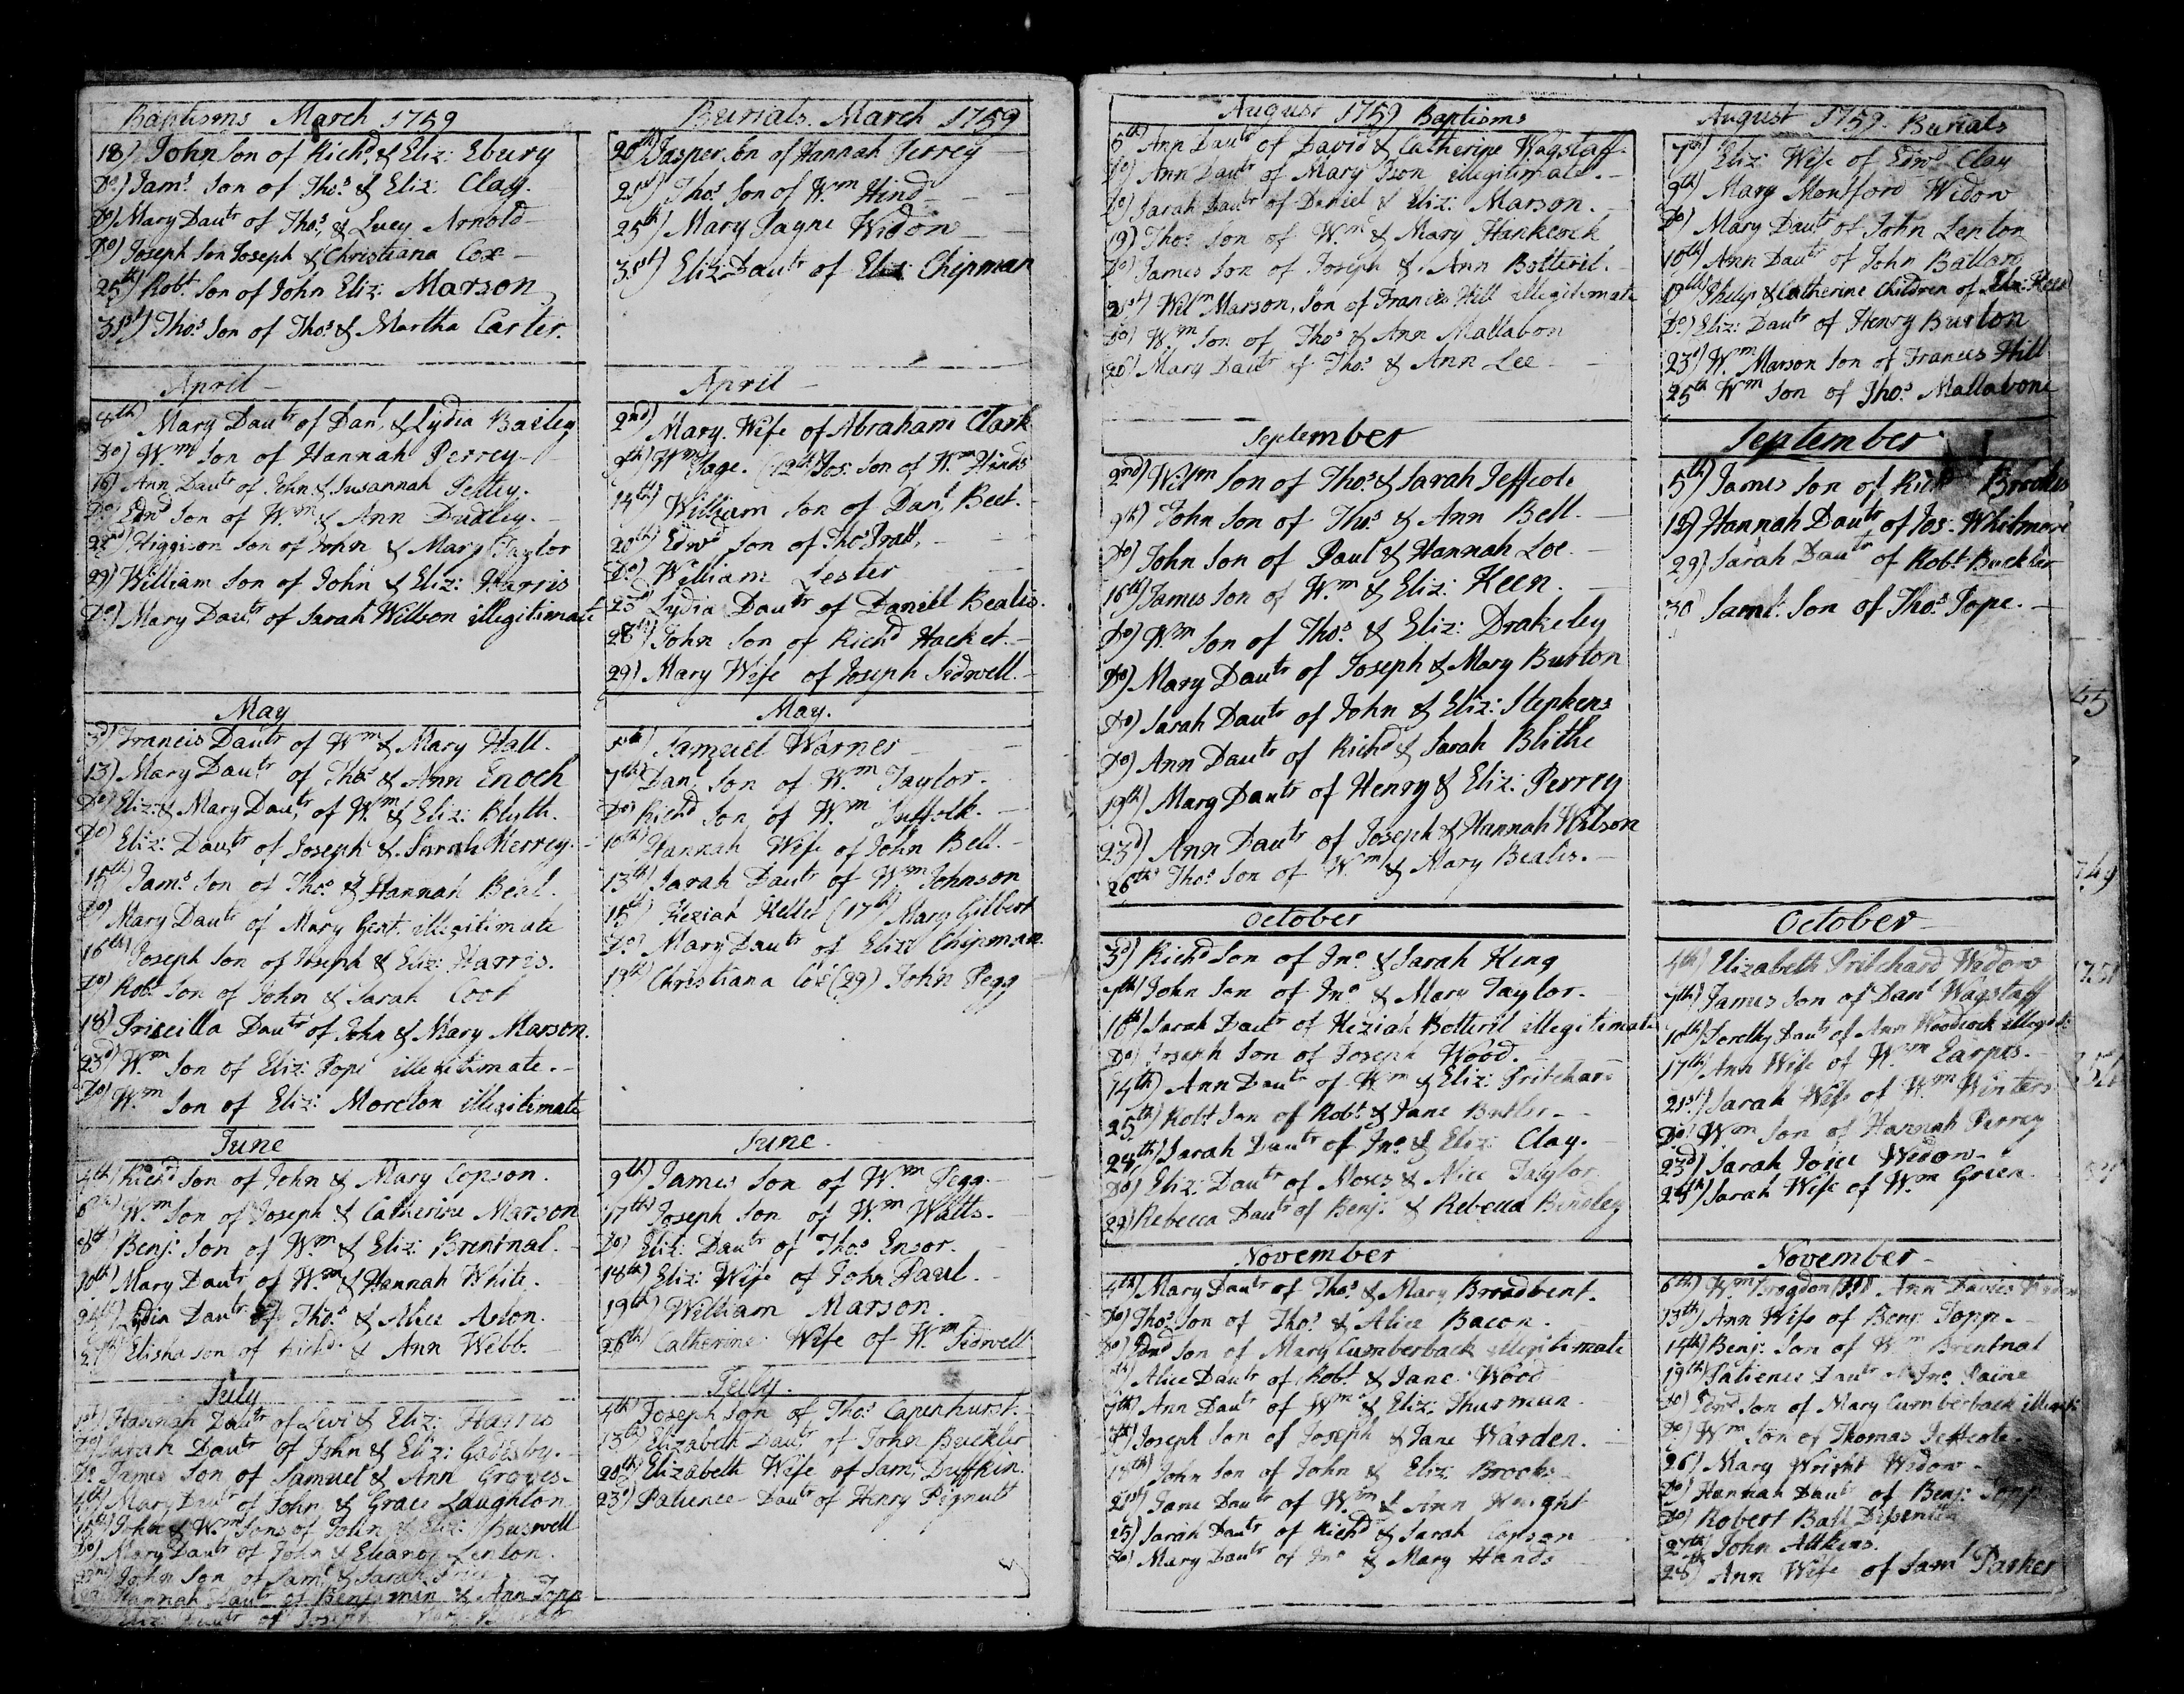 Baptisms March 1759
18) John Son of Richd. & Eliz: Ebury
Do) Jams. Son of Thos. & Eliz: Clay.
Do) Mary Dautr of Thos. & Lucy Arnold
Do) Joseph Son Joseph & Christiana Cox
25th) Robt. Son of John Eliz: Marson
31st) Thos. Son of Thos. & Martha Carter.
April
4th) Mary Dautr of Danl. & Lydia Bailey
Do) Wm Son of Hannah Perrey
16) Ann Dautr of John & Susannah Petley.
Do) Edwd Son of Wm. & Ann Dudley.
22nd) Higgison Son of John & Mary Taylor
29) William Son of John & Eliz: Harris
Do) Mary Dautr of Sarah Willson illegitimate
May
3d) Francis Dautr of Wm & Mary Hall.
13) Mary Dautr of Thos & Ann Enoch
Do) Eliz: & Mary Dautr of Wm. & Eliz: Blyth.
Do) Eliz: Dautr of Joseph & Sarah Herrey.
15th) Jams. Son of Thos & Hannah Beal.
Do) Mary Dautr of Mary Gent. illegitimate
16th) Joseph Son of Joseph & Eliz: Harris.
Do) Robt Son of John & Sarah Coot
18) Priscilla Dautr of John & Mary Marson.
23d) Wm. Son of Eliz: Pope illegitimate.
Do) Wm Son of Eliz: Moreton illegitimate
June
4th) Richd Son of John & Mary Copson.
6th) Wm Son of Joseph & Catherine Marson
8th) Benj: Son of Wm. & Eliz: Brentnal.
10th) Mary Dautr of Wm & Hannah White.
24th) Lydia Dautr of Thos & Alice Aston.
27th) Elisha Son of Richd & Ann Webb.
July
1st) Hannah Dautr of Levi & Eliz: Harris
Do) Sarah Dautr of John & Eliz: Gadesby.
Do James Son of Samuel & Ann Groves.
4th) Mary Dautr of John & Grace Laughton
15th) John & Wm Sons of John & Eliz: Buswell
Do) Mary Dautr of John & Eleanor Lenton.
22nd) John Son of Saml. & Sarah
Hannah Dautr of Benjamin & Ann Topp
Dautr of Joseph
Burials. March 1759
20th) Jasper Son of Hannah Perrey
21st) Thos. Son of Wm Hind
25th) Mary Jayne Widow
31st) Eliz: Dautr of Eliz: Chipman
April
2nd) Mary Wife of Abraham Clark
9th) Wm Page. (12th) Jos: Son of Wm. Hinds
14th) William Son of Danl. Beet.
20th) Edwd Son of Thos Pratt.
Do) William Lester
23d) Lydia Dautr of Daniell Bealis.
28th) John Son of Richd Hacket.
29) Mary Wife of Joseph Sidwell.
May.
Samuell Warner
7th) Danl Son of Wm Taylor.
Do) Richd Son of Wm Suffolk.
10th) Hannah Wife of John Bell.
13th) Sarah Dautr of Wm Johnson
15) Keziah Kellet (17th) Mary Gilbert
Do) Mary Dautr of Eliz: Chipman.
19th) Christiana Cox (29) John Pegg
June.
9th) James Son of Wm Pegg.
17th) Joseph Son of Wm Watts.
Do) Eliz: Dautr of Thos Ensor.
18th) Eliz: Wife of John Paul.
19th) William Marson.
26th) Catherine Wife of Wm Sidwell
July.
4th) Joseph Son of Thos Capenhurst.
13th) Elizabeth Dautr of John Buckler
20th) Elizabeth Wife of Saml. Duffkin.
23d) Patience Dautr of Henry Pignutt
August 1759 Baptisms
5th) Ann Dautr of David & Catherine Wagstaff.
Do) Ann Dautr of Mary Ison illegitimate.
Do) Sarah Dautr of Daniel & Eliz: Marson.
19) Thos Son of Wm & Mary Hankcock
Do) James Son of Joseph & Ann Botteril.
21st) Wilm Marson, Son of Francis Hill illegitimate
Do) Wm Son of Thos & Ann Mallabon
26) Mary Dautr of Thos. & Ann Lee
September
2nd) Wilm Son of Thos. & Sarah Jeffcote
9th) John Son of Thos. & Ann Bell.
Do) John Son of Paul & Hannah Loe.
16th) James Son of Wm. & Eliz: Keen.
Do) Wm Son of Thos. & Eliz: Drakeley
Do) Mary Dautr of Joseph & Mary Burton
Do) Sarah Dautr of John & Eliz: Stephens
Do) Ann Dautr of Richd & Sarah Blithe
19th) Mary Dautr of Henry & Eliz: Perrey
23d) Ann Dautr of Joseph & Hannah Wilson
26th) Thos. Son of Wm. & Mary Bealis.
October
3d) Richd Son of Jno. & Sarah King
7th) John Son of Jno & Mary Taylor.
10th) Sarah Dautr of Keziah Botteril illegitimate
Do) Joseph Son of Joseph Wood.
14th) Ann Dautr of Wm & Eliz: Pritchard
25th) Robt. Son of Robt. & Jane Butler
24th) Sarah Dautr of Jno. & Eliz: Clay.
Do) Eliz: Dautr of Moses & Alice Taylor
29) Rebecca Dautr of Benj: & Rebecca Bindley
November
4th) Mary Dautr of Thos. & Mary Broadbent.
Do) Thos. Son of Thos. & Alice Bacon.
Do) Edwd Son of Mary Cumberback illegitimate
Alice Dautr of Robt. & Jane Wood
7th) Ann Dautr of Wm & Eliz: Thurman.
Joseph Son of Joseph & Jane Warden.
18th) John Son of John & Eliz: Brooks
21st) Jane Dautr of Wm & Ann Wright
25) Sarah Dautr of Richd & Sarah Copson
Do) Mary Dautr of Jno & Mary Hands
August 1759. Burials
7th) Eliz: Wife of Edwd. Clay
9th) Mary Montford Widow
Do) Mary Dautr of John Lenton
10th) Ann Dautr of John Ballard
17th) Phelip & Catherine Children of
Do.) Eliz: Dautr of Henry Burton
23d) Wm. Marson Son of Francis Hill
25th Wm Son of Thos. Mallabone
September
5th) James Son of Richd Brooks
12) Hannah Dautr of Jos: Whitmore
29) Sarah Dautr of Robt. Buckler
30 Saml. Son of Thos. Pope.
October
4th) Elizabeth Pritchard Widow
7th) James Son of Danl Wagstaff
10th) Dorothy Dautr of Ann Woodcock illegit:
17th) Ann Wife of Wm Earpes.
21st) Sarah Wife of Wm Winters
Do) Wm Son of Hannah Perrey
23d) Sarah Joice Widow.
24th) Sarah Wife of Wm Green.
November
6th) Wm Brogdon Ann Davies
13th) Ann Wife of Benj: Topp.
14th) Benj: Son of Wm Brentnal
19th) Patience Dautr of Jno. Paine
Do) Edwd Son of Mary Cumberback illegit:
Do) Wm Son of Thomas Jeffcote.
26) Mary Wright Widow
Do) Hannah Dautr of Benj: Topp
Do) Robert Ball Dissenter
27th) John Attkins.
28) Ann Wife of Saml Parker
45
749